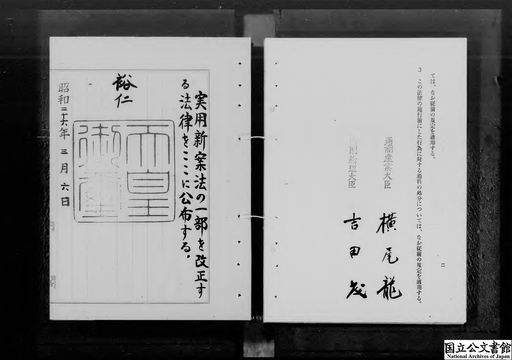 ては、なお従前の規定を適用する。
2 この法律の施行前にした行為に対する罰則の については、なお従前の規定を適用する。
二
通商産業大臣 横尾龍
内閣総理大臣 吉田茂
実用新案法の一部を改正す
る法律をここに公布する。
裕仁
天皇
御璽
昭和二十六年三月六日
国立公文書館
National Archives of Japan